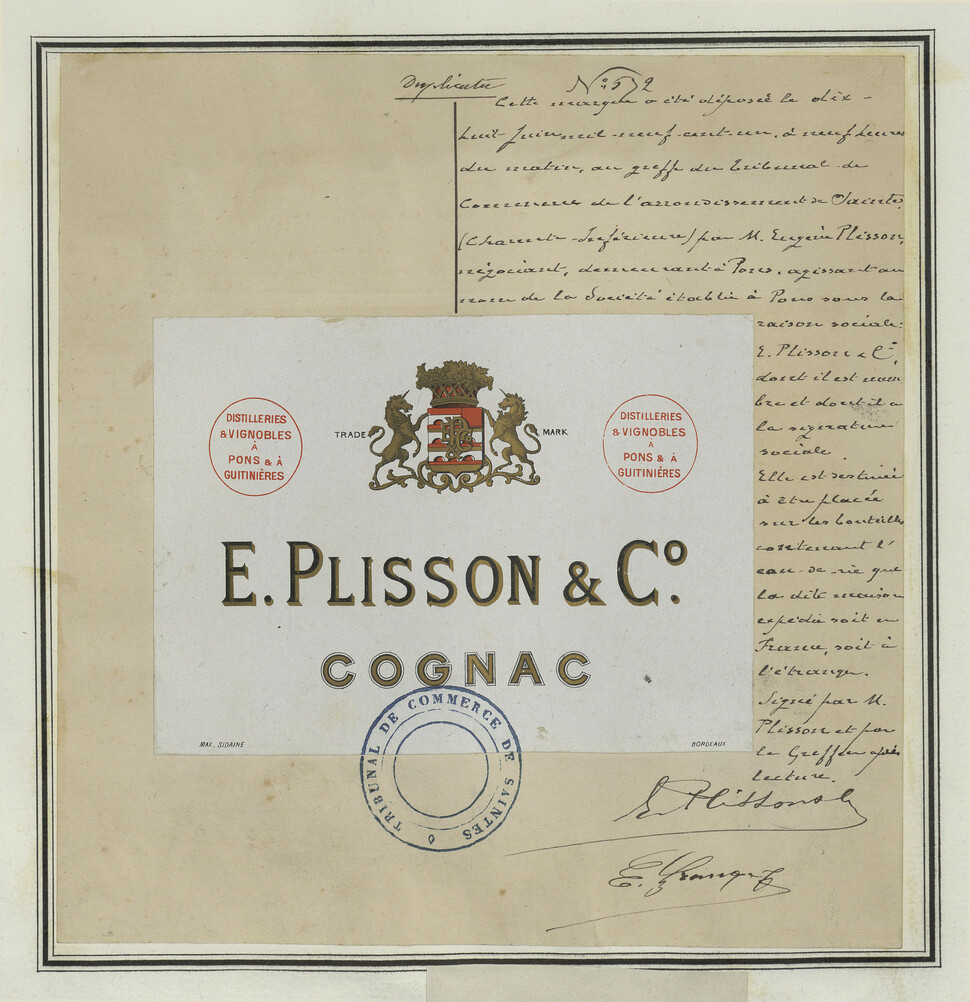 Duplicata
N° 572
Cette marque a été déposée le dix-
huit Juin mil-neuf-cent-un, à neuf heures
du matin, au greffe du Tribunal de
Commerce de l'arrondissement de Saintes,
(Charente-Inférieure) par M. Eugène Plisson,
négociant, demeurant à Pons, agissant au
nom de la Société établie à Pons sous la
raison sociale:
E. Plisson & Cie,
dont il est mem-
bre et dont il a
la signature
sociale.
Elle est destinée
à être placée
sur les bouteilles
contenant l'
eau-de-vie que
la dite maison
expédie soit en
France, soit à
l'étranger.
Signé par M.
Plisson et par
le Greffier après
lecture.
DISTILLERIES
& VIGNOBLES
À
PONS & À
GUITINIÈRES
TRADE MARK
DISTILLERIES
& VIGNOBLES
À
PONS & À
GUITINIÈRES
E. PLISSON & Co.
COGNAC
MAX. SIDAINE
BORDEAUX
TRIBUNAL DE COMMERCE DE SAINTES
E. Plisson